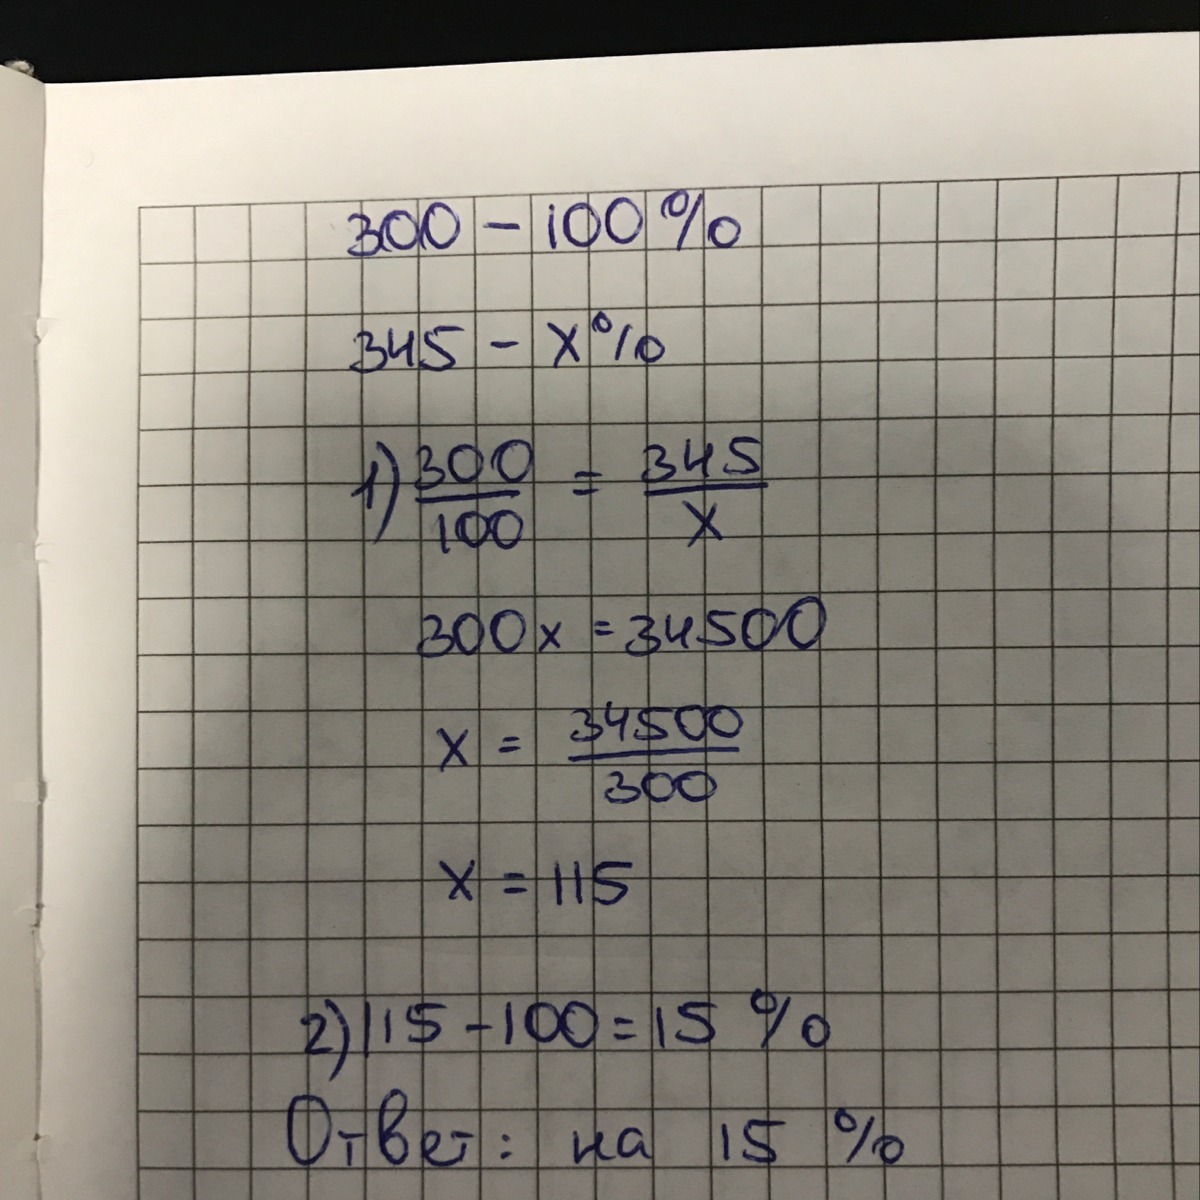 300 - 100%
345 - x%
1) 300/100 = 345/x
300x = 34500
x = 34500/300
x = 115
2) 115 - 100 = 15 %
Ответ: на 15 %